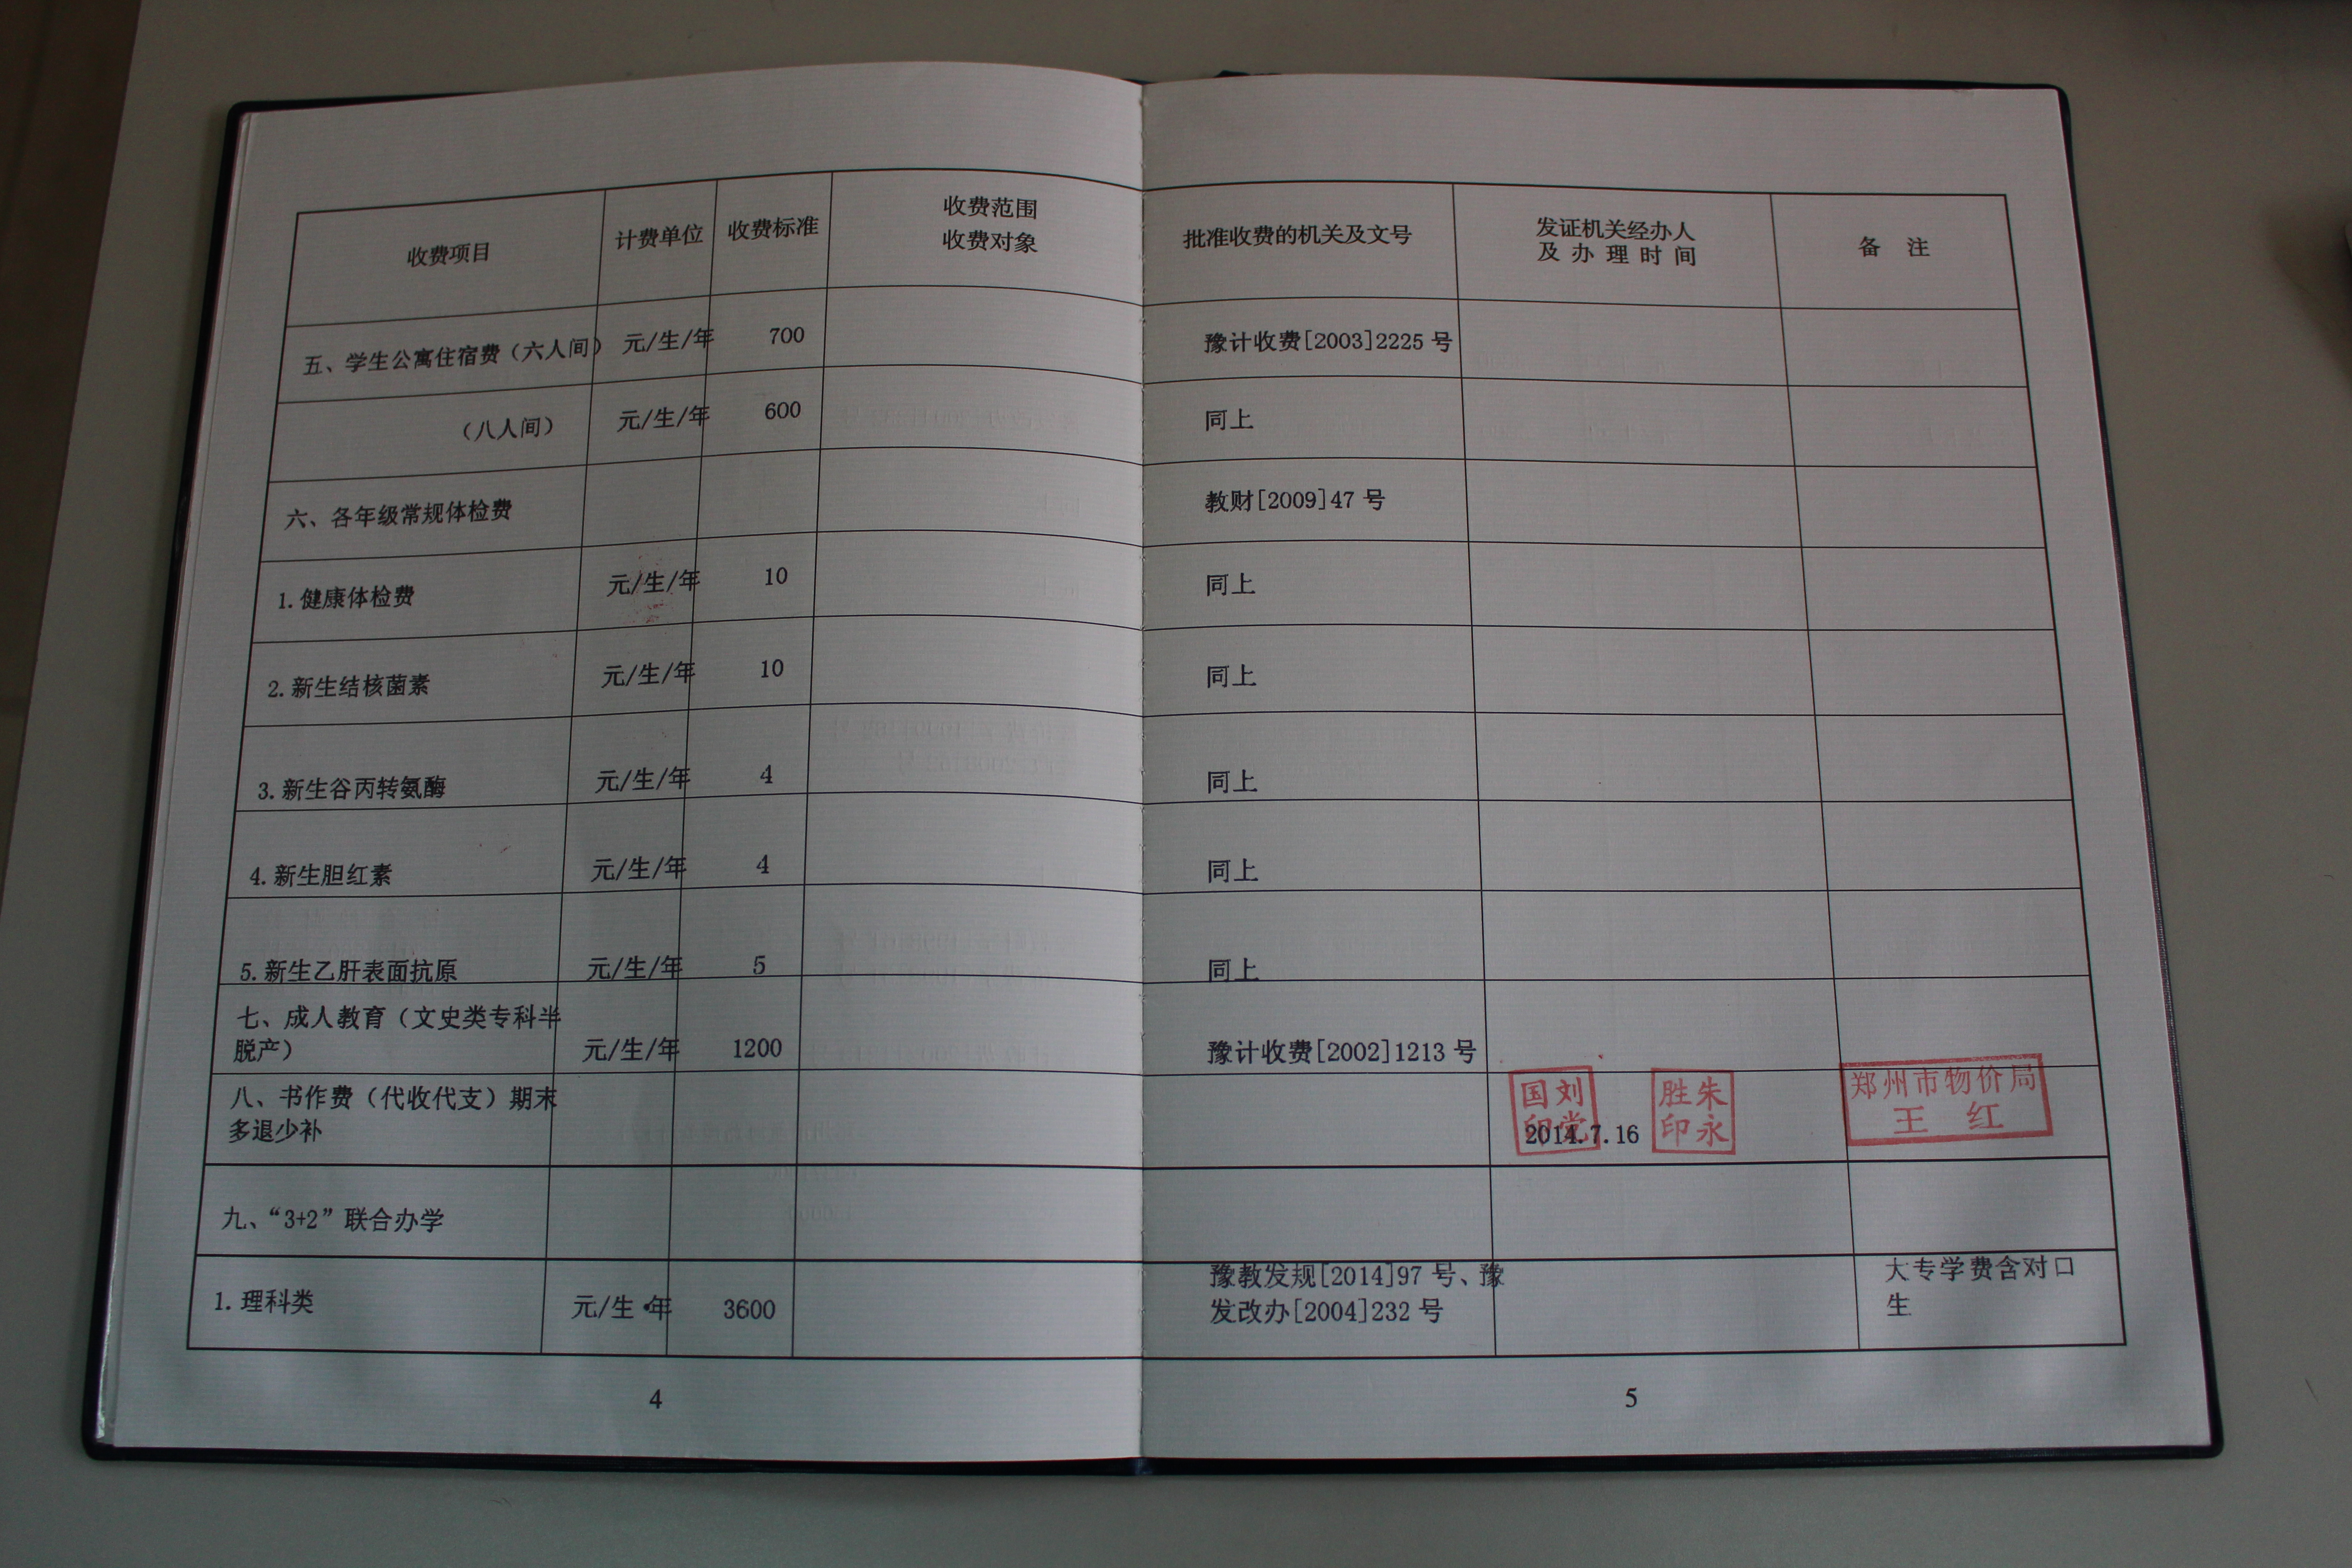 收费项目 计费单位 收费标准 收费范围 批准收费的机关及文号 发证机关经办人 备 注
收费对象 及办理时间
五、学生公寓住宿费（六人间） 元/生/年 700 豫计收费[2003]2225 号
（八人间） 元/生/年 600 同上
六、各年级常规体检费 教财[2009]47 号
1.健康体检费 元/生/年 10 同上
2.新生结核菌素 元/生/年 10 同上
3.新生谷丙转氨酶 元/生/年 4 同上
4.新生胆红素 元/生/年 4 同上
5.新生乙肝表面抗原 元/生/年 5 同上
七、成人教育（文史类专科半
脱产） 元/生/年 1200 豫计收费[2002]1213 号
八、书作费（代收代支）期末 国刘 胜朱 郑州市物价局
多退少补 印党 印永 王 红
2014.7.16
九、“3+2”联合办学
1.理科类 元/生·年 3600 豫教发规[2014]97 号、豫 大专学费含对口
发改办[2004]232 号 生
4 5